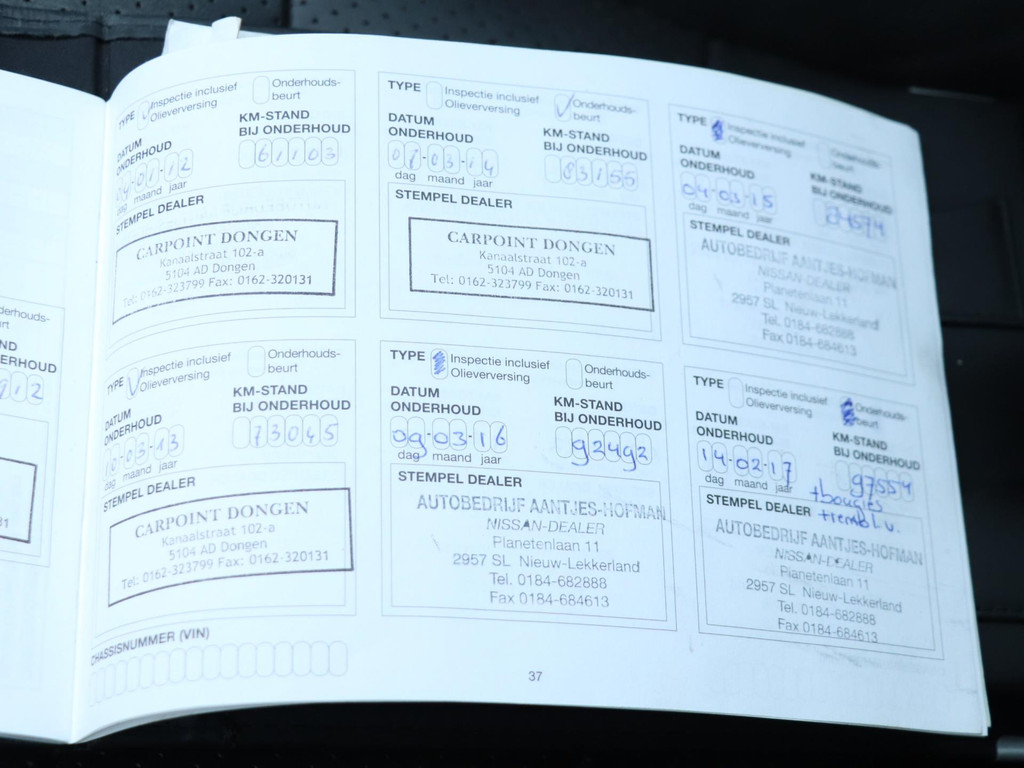 TYPE Inspectie inclusief Olieverversing
Onderhouds-
beurt
DATUM
ONDERHOUD
KM-STAND
BIJ ONDERHOUD
01-12
61103
dag maand jaar
STEMPEL DEALER
CARPOINT DONGEN
Kanaalstraat 102-a
5104 AD Dongen
Tel: 0162-323799 Fax: 0162-320131
TYPE Inspectie inclusief
Olieverversing
Onderhouds-
beurt
DATUM
ONDERHOUD
KM-STAND
BIJ ONDERHOUD
03-13
73045
dag maand jaar
STEMPEL DEALER
CARPOINT DONGEN
Kanaalstraat 102-a
5104 AD Dongen
Tel: 0162-323799 Fax: 0162-320131
CHASSISNUMMER (VIN)
TYPE Inspectie inclusief
Olieverversing
Onderhouds-
beurt
DATUM
ONDERHOUD
KM-STAND
BIJ ONDERHOUD
07-03-14
83155
dag maand jaar
STEMPEL DEALER
CARPOINT DONGEN
Kanaalstraat 102-a
5104 AD Dongen
Tel: 0162-323799 Fax: 0162-320131
TYPE Inspectie inclusief
Olieverversing
Onderhouds-
beurt
DATUM
ONDERHOUD
KM-STAND
BIJ ONDERHOUD
09-03-16
92492
dag maand jaar
STEMPEL DEALER
AUTOBEDRIJF AANTJES-HOFMAN
NISSAN-DEALER
Planetenlaan 11
2957 SL Nieuw-Lekkerland
Tel. 0184-682888
Fax 0184-684613
TYPE Inspectie inclusief
Olieverversing
Onderhouds-
beurt
DATUM
ONDERHOUD
KM-STAND
BIJ ONDERHOUD
04-03-15
dag maand jaar
STEMPEL DEALER
AUTOBEDRIJF AANTJES-HOFMAN
NISSAN-DEALER
Planetenlaan 11
2957 SL Nieuw-Lekkerland
Tel. 0184-682888
Fax 0184-684613
TYPE Inspectie inclusief
Olieverversing
Onderhouds-
beurt
DATUM
ONDERHOUD
KM-STAND
BIJ ONDERHOUD
14-02-17
97554
dag maand jaar
+bougies
+remblv.
STEMPEL DEALER
AUTOBEDRIJF AANTJES-HOFMAN
NISSAN-DEALER
Planetenlaan 11
2957 SL Nieuw-Lekkerland
Tel. 0184-682888
Fax 0184-684613
37